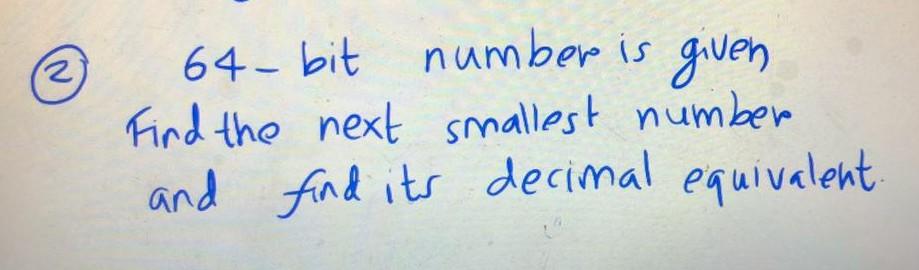 ② 64-bit number is given
Find the next smallest number
and find its decimal equivalent.